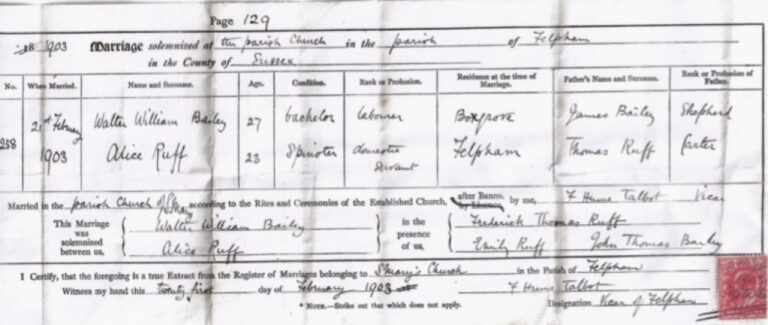 Page 129
1903 Marriage solemnized at the Parish Church in the parish of Felpham
in the County of Sussex
No. When Married. Name and Surname. Age. Condition. Rank or Profession. Residence at the time of Marriage. Father's Name and Surname. Rank or Profession of Father.
258 21st February 1903 Walter William Bailey 27 bachelor labourer Boxgrove James Bailey Shepherd
Alice Ruff 23 Spinster domestic servant Felpham Thomas Ruff Carter
Married in the parish Church of St Mary according to the Rites and Ceremonies of the Established Church, after Banns, by Licence, by me, F Hume Talbot Vicar
This Marriage was solemnized between us, Walter William Bailey in the presence of us, Frederick Thomas Ruff
Alice Ruff Emily Ruff John Thomas Bailey
I Certify, that the foregoing is a true Extract from the Register of Marriages belonging to St Mary's Church in the Parish of Felpham
Witness my hand this twenty first day of February 1903 F Hume Talbot
* NOTE.—Strike out that which does not apply. Designation Vicar of Felpham